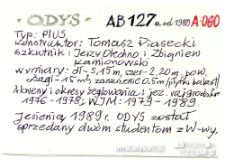 "ODYS" AB127 a. od 1989 A-060
Typ: PIUS
Konstruktor: Tomasz Piasecki
szkutnik: Jerzy Olechno i Zbigniew
Kamionowski
wymiary: dł-5,15m, szer-2,20m. pow.
żagli-15m², zanurzenie 0.5m (płytki balast)
Akweny i okresy żeglowania: jez. rajgrodzkie
1976-1978; WJM: 1979-1989
Jesienią 1989 r. ODYS został
sprzedany dwóm studentom z W-wy.